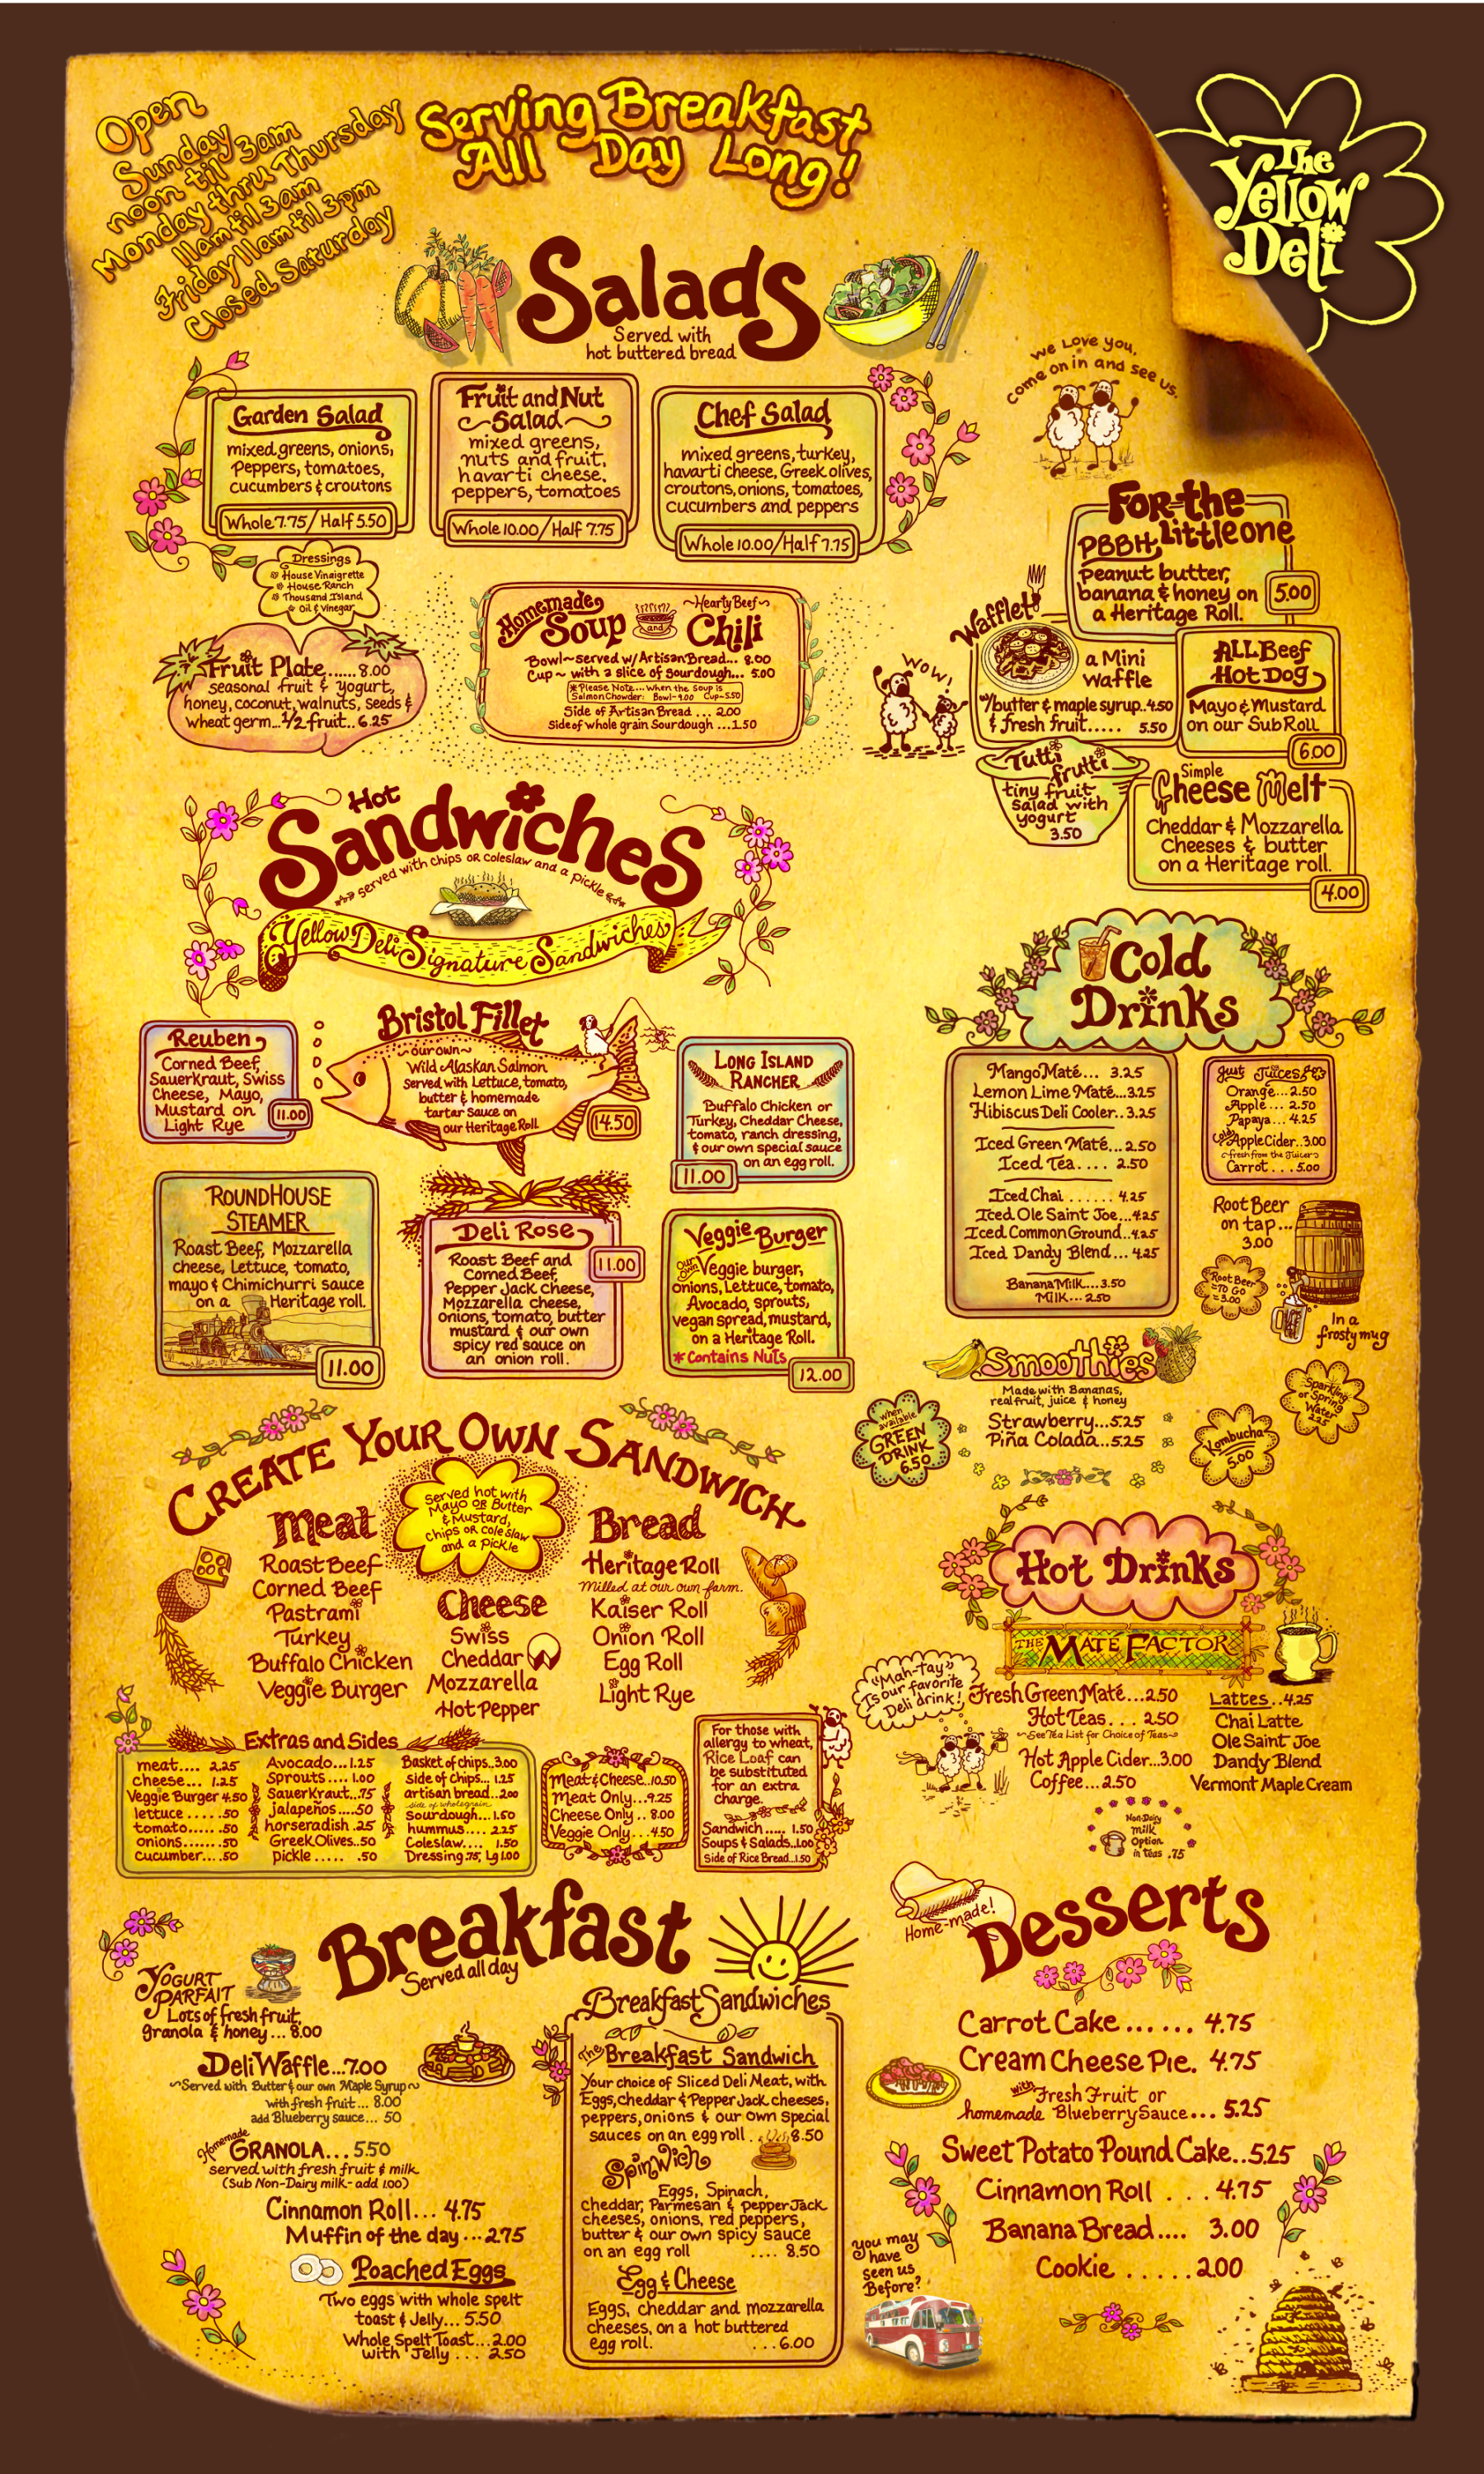 Open
Sunday
noon til 3am
Monday thru Thursday
11am til 3am
Friday 11am til 3pm
Closed Saturday
Serving Breakfast
All Day Long!
The
Yellow
Deli
Salads
Served with
hot buttered bread
we Love you,
come on in and see us.
Garden Salad
mixed greens, onions,
Peppers, tomatoes,
cucumbers & croutons
Whole 7.75/Half 5.50
Fruit and Nut
Salad
mixed greens,
nuts and fruit,
havarti cheese,
peppers, tomatoes
Whole 10.00/Half 7.75
Chef Salad
mixed greens, turkey,
havarti cheese, Greek olives,
croutons, onions, tomatoes,
cucumbers and peppers
Whole 10.00/Half 7.75
Dressings
House Vinaigrette
House Ranch
Thousand Island
Oil & Vinegar
Fruit Plate......8.00
seasonal fruit & yogurt,
honey, coconut, walnuts, seeds &
wheat germ...1/2 fruit..6.25
Homemade
Soup and
~Hearty Beef~
Chili
Bowl~served w/Artisan Bread... 8.00
Cup~ with a slice of sourdough... 5.00
*Please Note...When the soup is
Salmon Chowder: Bowl-9.00 Cup-5.50
Side of Artisan Bread ... 2.00
Side of whole grain Sourdough ...1.50
For the
Little one
PBBH
peanut butter,
banana & honey on
a Heritage Roll.
5.00
Wafflet
a Mini
waffle
w/butter & maple syrup..4.50
& fresh fruit..... 5.50
WOW!
ALL Beef
Hot Dog
Mayo & Mustard
on our Sub Roll
6.00
Tutti
frutti
tiny fruit
salad with
yogurt
3.50
Simple
Cheese Melt
Cheddar & Mozzarella
Cheeses & butter
on a Heritage roll.
4.00
Hot
Sandwiches
served with chips OR coleslaw and a pickle
Yellow Deli Signature Sandwiches
Reuben
Corned Beef,
Sauerkraut, Swiss
Cheese, Mayo,
Mustard on
Light Rye
11.00
Bristol Fillet
~our own~
Wild Alaskan Salmon
Served with Lettuce, tomato,
butter & homemade
tartar sauce on
our Heritage Roll
14.50
Long Island
Rancher
Buffalo Chicken or
Turkey, Cheddar Cheese,
tomato, ranch dressing,
& our own special sauce
on an egg roll.
11.00
Roundhouse
Steamer
Roast Beef, Mozzarella
cheese, Lettuce, tomato,
mayo & Chimichurri sauce
on a Heritage roll.
11.00
Deli Rose
Roast Beef and
Corned Beef,
Pepper Jack Cheese,
Mozzarella cheese,
onions, tomato, butter
mustard & our own
spicy red sauce on
an onion roll.
11.00
Veggie Burger
Our Own Veggie burger,
onions, Lettuce, tomato,
Avocado, sprouts,
vegan spread, mustard,
on a Heritage Roll.
*Contains Nuts
12.00
Cold
Drinks
Mango Maté... 3.25
Lemon Lime Maté...3.25
Hibiscus Deli Cooler..3.25
Iced Green Maté...2.50
Iced Tea.... 2.50
Iced Chai ...... 4.25
Iced Ole Saint Joe...4.25
Iced Common Ground..4.25
Iced Dandy Blend... 4.25
Banana Milk....3.50
Milk... 2.50
Just Juices
Orange...2.50
Apple.... 2.50
Papaya... 4.25
Cold Apple Cider..3.00
fresh from the Juicer
Carrot ... 5.00
Root Beer
on tap...
3.00
Root Beer
TO GO
3.00
In a
frosty mug
Smoothies
Made with Bananas,
real fruit, juice & honey
Strawberry...5.25
Piña Colada..5.25
When
available
GREEN
DRINK
6.50
Kombucha
5.00
Sparkling
or Spring
Water
2.25
Create Your Own Sandwich
Served hot with
Mayo OR Butter
& Mustard,
Chips OR cole slaw
and a pickle
Meat
Roast Beef
Corned Beef
Pastrami
Turkey
Buffalo Chicken
Veggie Burger
Cheese
Swiss
Cheddar
Mozzarella
Hot Pepper
Bread
Heritage Roll
Milled at our own farm.
Kaiser Roll
Onion Roll
Egg Roll
Light Rye
Extras and Sides
meat.... 2.25
cheese... 1.25
Veggie Burger 4.50
lettuce .....50
tomato......50
onions.......50
cucumber....50
Avocado...1.25
Sprouts .... 1.00
Sauerkraut...75
jalapeños....50
horseradish .25
Greek Olives..50
pickle ..... .50
Basket of chips..3.00
side of chips... 1.25
artisan bread..2.00
side of whole grain
Sourdough...1.50
hummus.... 2.25
Coleslaw.... 1.50
Dressing .75, Lg 1.00
Meat & Cheese..10.50
Meat Only...9.25
Cheese Only .. 8.00
Veggie Only...4.50
For those with
allergy to wheat,
Rice Loaf can
be substituted
for an extra
charge.
Sandwich..... 1.50
Soups & Salads..1.00
Side of Rice Bread..1.50
Hot Drinks
The Maté Factor
"Mah-Tay"
Is our favorite
Deli drink!
Fresh Green Maté...2.50
Hot Teas.... 2.50
~See Tea List for Choice of Teas~
Hot Apple Cider...3.00
Coffee...2.50
Lattes..4.25
Chai Latte
Ole Saint Joe
Dandy Blend
Vermont Maple Cream
Non-Dairy
milk
Option
in teas .75
Breakfast
Served all day
Yogurt
Parfait
Lots of fresh fruit,
granola & honey... 8.00
Deli Waffle...7.00
~Served with Butter & our own Maple Syrup~
with fresh fruit... 8.00
add Blueberry sauce... 50
Homemade
Granola...5.50
served with fresh fruit & milk
(Sub Non-Dairy milk- add 1.00)
Cinnamon Roll... 4.75
Muffin of the day...2.75
Poached Eggs
Two eggs with whole spelt
toast & Jelly... 5.50
Whole Spelt Toast...2.00
with Jelly ... 2.50
Breakfast Sandwiches
The Breakfast Sandwich
Your choice of Sliced Deli Meat, with
Eggs, cheddar & Pepper Jack cheeses,
peppers, onions & our own special
sauces on an egg roll . 8.50
Spinwich
Eggs, Spinach,
cheddar, Parmesan & pepper Jack
cheeses, onions, red peppers,
butter & our own spicy sauce
on an egg roll .... 8.50
Egg & Cheese
Eggs, cheddar and mozzarella
cheeses, on a hot buttered
egg roll. ...6.00
Home-made!
Desserts
Carrot Cake...... 4.75
Cream Cheese Pie. 4.75
with Fresh Fruit or
homemade Blueberry Sauce... 5.25
Sweet Potato Pound Cake..5.25
Cinnamon Roll ... 4.75
Banana Bread.... 3.00
Cookie .....2.00
you may
have
seen us
Before?